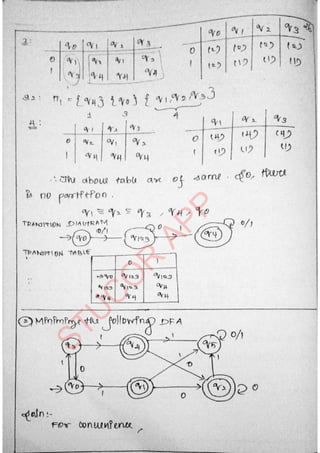 3:
q0 q1 q2 q3
0 q1 q2 q1 q2
1 q3 q4 q4 q4
q0 q1 q2 q3
0 (2) (2) (2) (2)
1 (2) (1) (1) (1)
π1 = {q4} {q0} {q1, q2, q3}
1 3 4
4:
q1 q2 q3
0 q2 q1 q2
1 q4 q4 q4
q1 q2 q3
0 (4) (4) (4)
1 (1) (1) (1)
∴ The above table are of same. So, there
is no partition.
q1 ≡ q2 ≡ q3, q4, q0
TRANSITION DIAGRAM
q0 0/1 q123 1 q4 0/1
0
TRANSITION TABLE
0 1
→q0 q123 q123
q123 q123 q4
*q4 q4 q4
② Minimize the following DFA
1 1 0/1
q5
1 0 1 0 1
q0 1 q1 0 q3 0
Soln:-
For convenience,
STUCOR APP